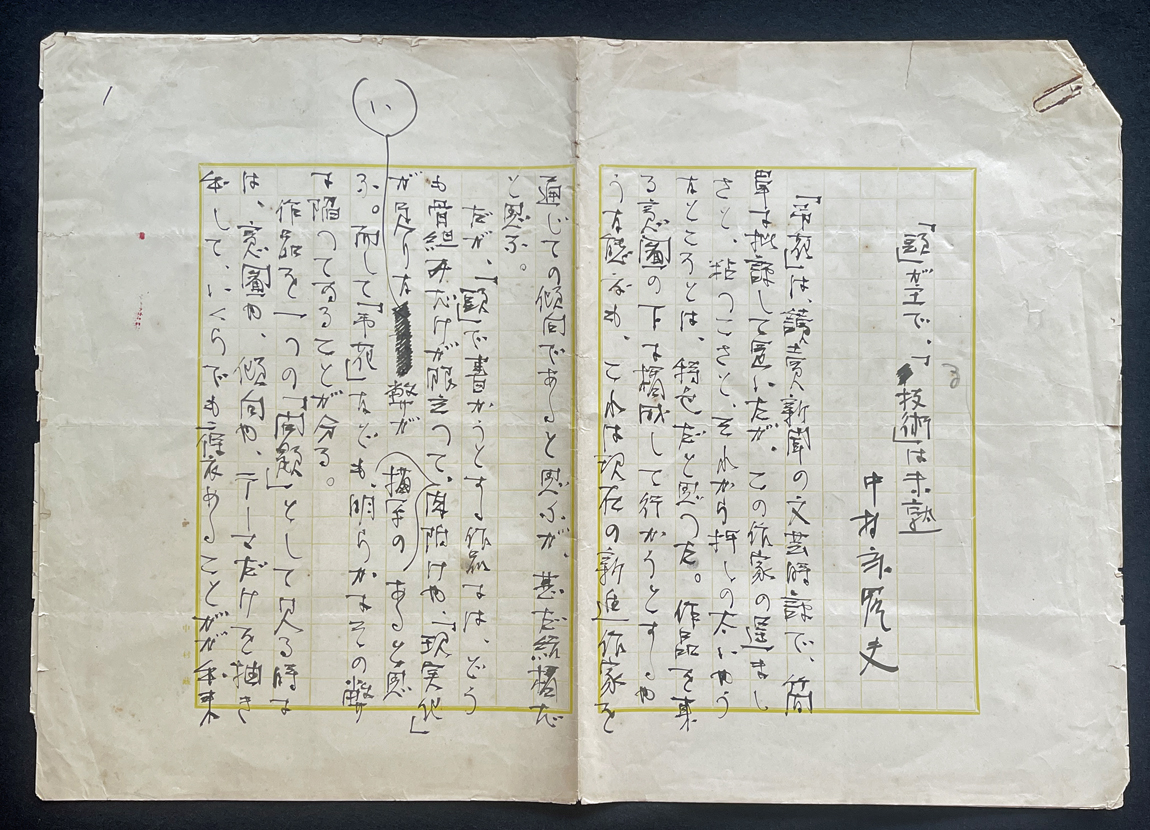 「頭」が主で、「技術」は未熟
中村武羅夫
は、讀賣新聞の文芸時評で、簡
單に批評して置いたが、この作家の逞まし
さと、粘つこさと、それから押しの太いやう
なところとは、特色だと思つた。作品を裏
る意圖の下に構成して行かうとするや
うな態度も、これは現在の新進作家を
通じての傾向であると思ふが、甚だ結構だ
と思ふ。
だが、「頭」で書かうとする作品には、どう
も骨組みだけが眼立つて、肉附けや、「現実化」
が足りない弊が あると思
描写の
ふ。而して など も、明らかにその弊
に陥つてゐることが分る。
作品を一つの「問題」として見る時に
は、意圖や、傾向や、テーマだけを抽き
出して、いくらでも ことが出来
い